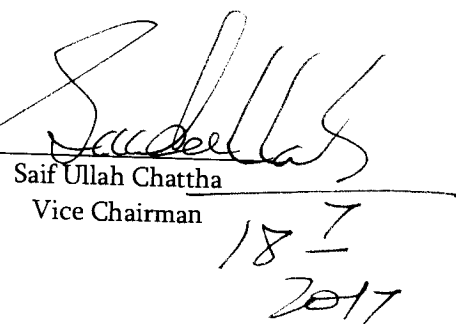 Saif Ullah Chattha
Vice Chairman
18 7
2017